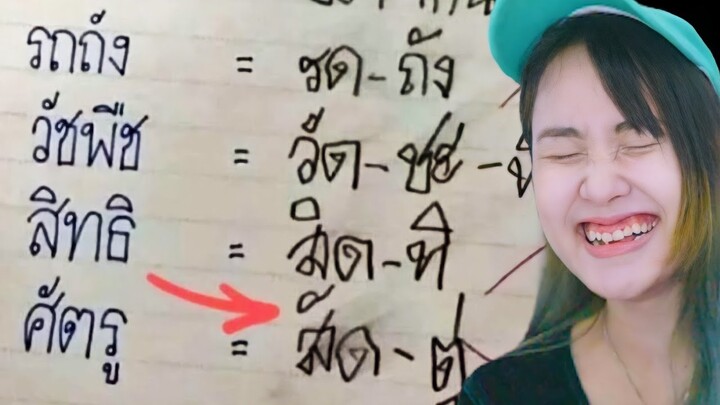 รถถัง = รด-ถัง
วัชพืช = วัด-ชะ-
สิทธิ = สิด-ทิ
ศัตรู = สัด-ตู